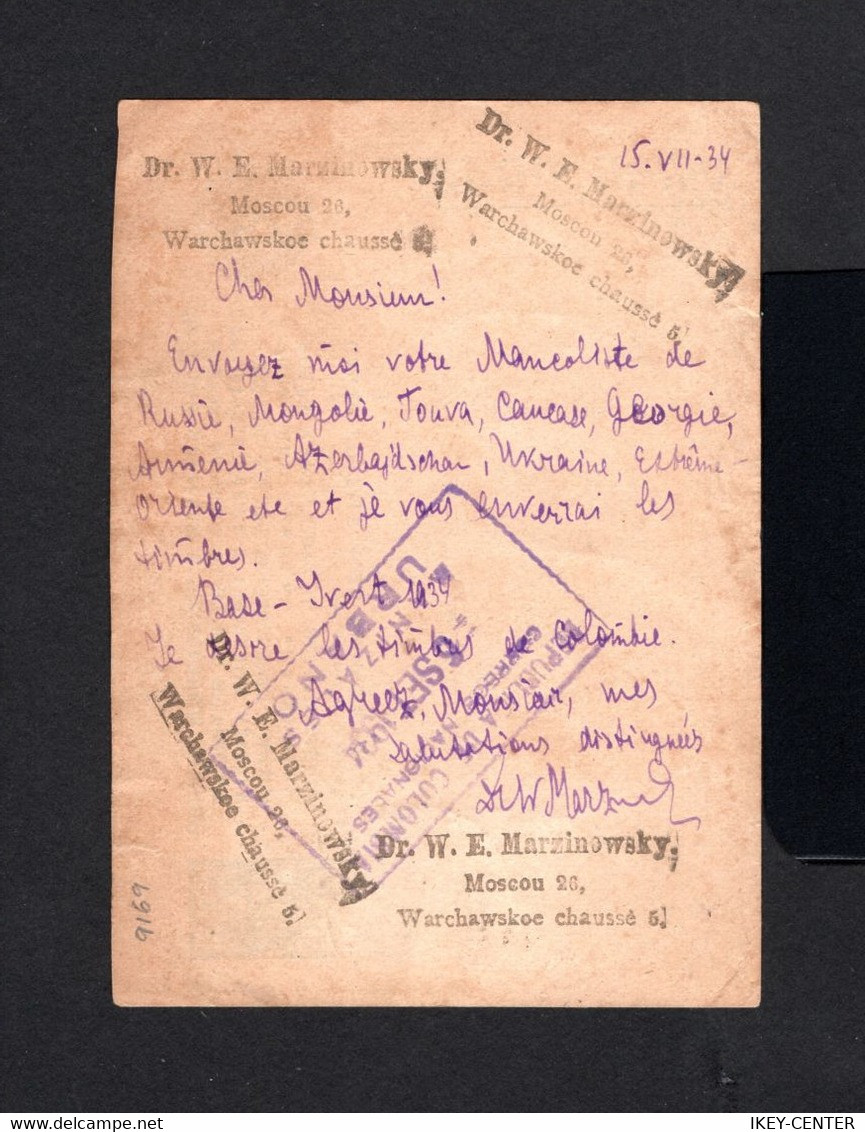 Dr. W. E. Marzinowsky,
Moscou 26,
Warchawskoe chaussé 5.
Dr. W. E. Marzinowsky,
Moscou 26,
Warchawskoe chaussé 5.
15.VII-34
Cher Monsieur!
Envoyez moi votre Mancoliste de
Russie, Mongolie, Touva, Caucase, Georgie,
Armenie, Azerbajdschan, Ukraine, Extrême-
Oriente etc et je vous enverrai les
timbres.
Base - Yvert 1934
Je desire les timbres de Colombie.
Agreez, Monsieur, mes
salutations distinguées
Dr W Marz
REPUBLICA DE COLOMBIA
CORREOS NACIONALES
URBANOS
Dr. W. E. Marzinowsky,
Moscou 26,
Warchawskoe chaussé 5.
Dr. W. E. Marzinowsky,
Moscou 26,
Warchawskoe chaussé 5.
9169
delcampe.net
IKEY-CENTER